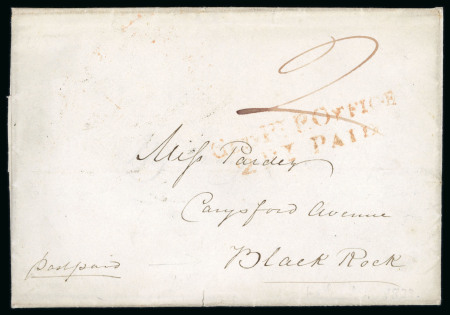 2
P. OFFICE
PAID
Miss
Carysford Avenue
Black Rock
postpaid